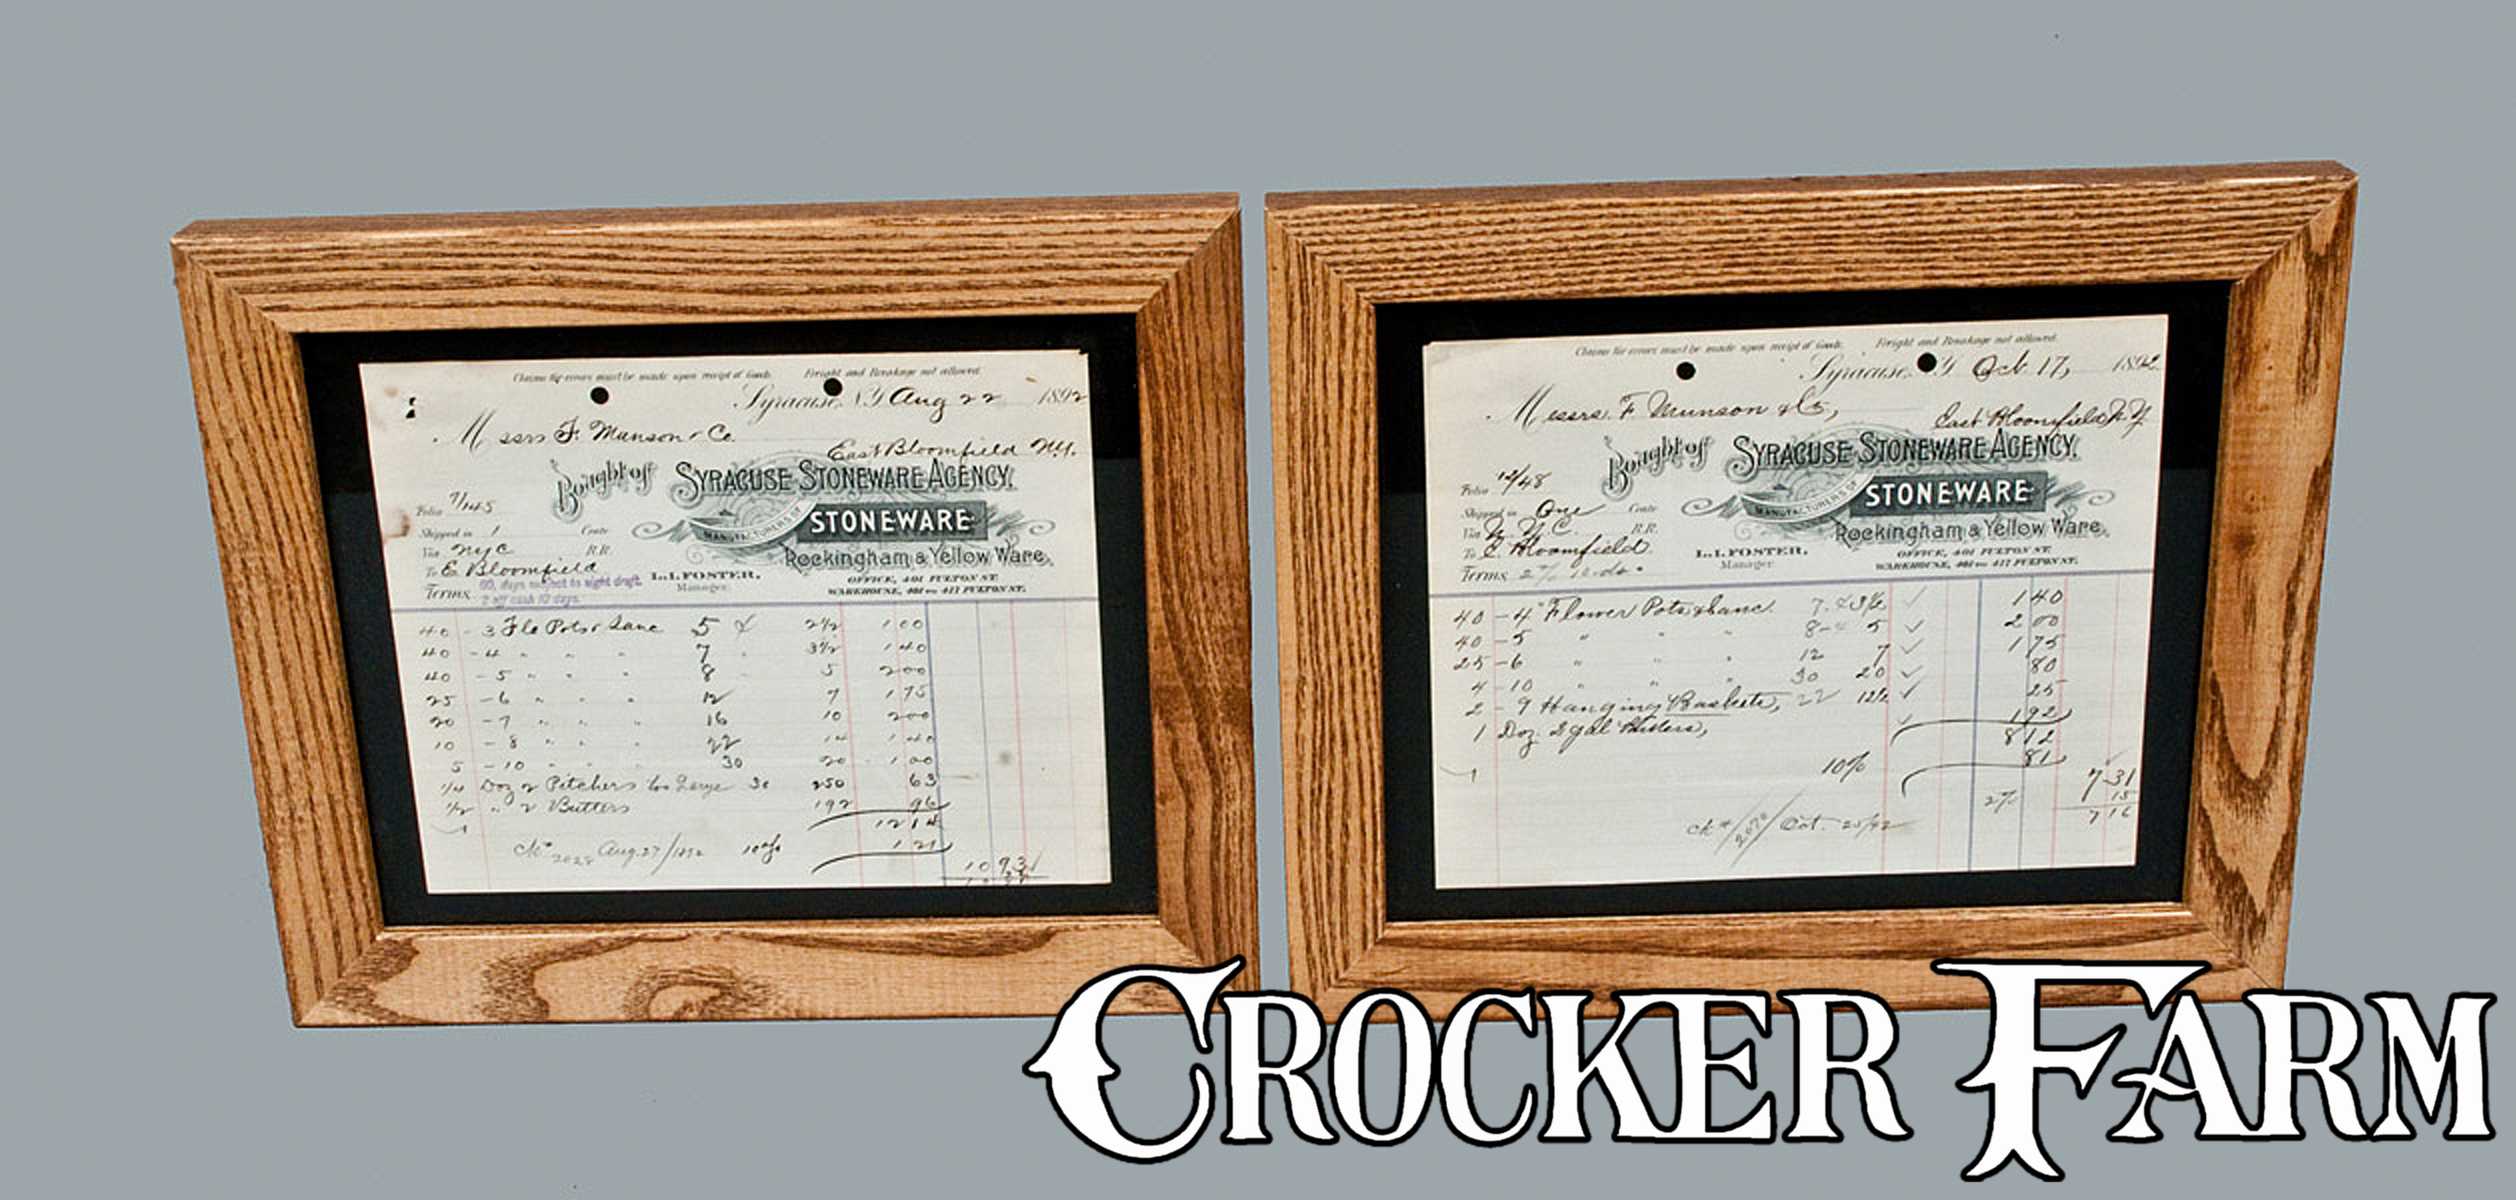 Claims for errors must be made upon receipt of Goods. Freight and Breakage not allowed.
Syracuse, N.Y. Aug 22 1892
Messrs F. Munson & Co.
East Bloomfield N.Y.
Bought of SYRACUSE STONEWARE AGENCY.
MANUFACTURERS OF STONEWARE
Rockingham & Yellow Ware.
Folio 7/145
Shipped in 1 Crate
Via NYC R.R.
To E Bloomfield
Terms, 60 days subject to sight draft.
2 off cash 10 days.
L. I. FOSTER, Manager.
OFFICE, 401 FULTON ST.
WAREHOUSE, 401 TO 417 FULTON ST.
40 - 3 Flo Pots & Sauc 5 ¢ 2½ 100
40 - 4 " " " 7 " 3½ 140
40 - 5 " " " 8 " 5 200
25 - 6 " " " 12 7 175
20 - 7 " " " 16 10 200
10 - 8 " " " 22 14 140
5 - 10 " " " 30 20 100
1/4 Doz 2 Pitchers too Large 30 250 63
1/2 " 2 Butters 192 96
1214
Ck# 2028 Aug. 27/1892 10% 121
1093
Claims for errors must be made upon receipt of Goods. Freight and Breakage not allowed.
Syracuse, N.Y. Oct 17, 1892
Messrs. F. Munson & Co,
East Bloomfield N.Y.
Bought of SYRACUSE STONEWARE AGENCY.
MANUFACTURERS OF STONEWARE
Rockingham & Yellow Ware.
Folio 12/48
Shipped in One Crate
Via N.Y.C. R.R.
To E. Bloomfield
Terms, 2% 10 ds.
L. I. FOSTER, Manager.
OFFICE, 401 FULTON ST.
WAREHOUSE, 401 TO 417 FULTON ST.
40 - 4" Flower Pots & Sauc. 7.¢ 3½ 140
40 - 5 " " " 8-¢ 5 200
25 - 6 " " " 12 7 175
4 - 10 " " " 30 20 80
2 - 9 Hanging Baskets, 22 12½ 25
1 Doz. 2 gal Butters, 192
812
10% 81
731
2% 15
716
Ck# /2070/ Oct. 25/92
CROCKER FARM